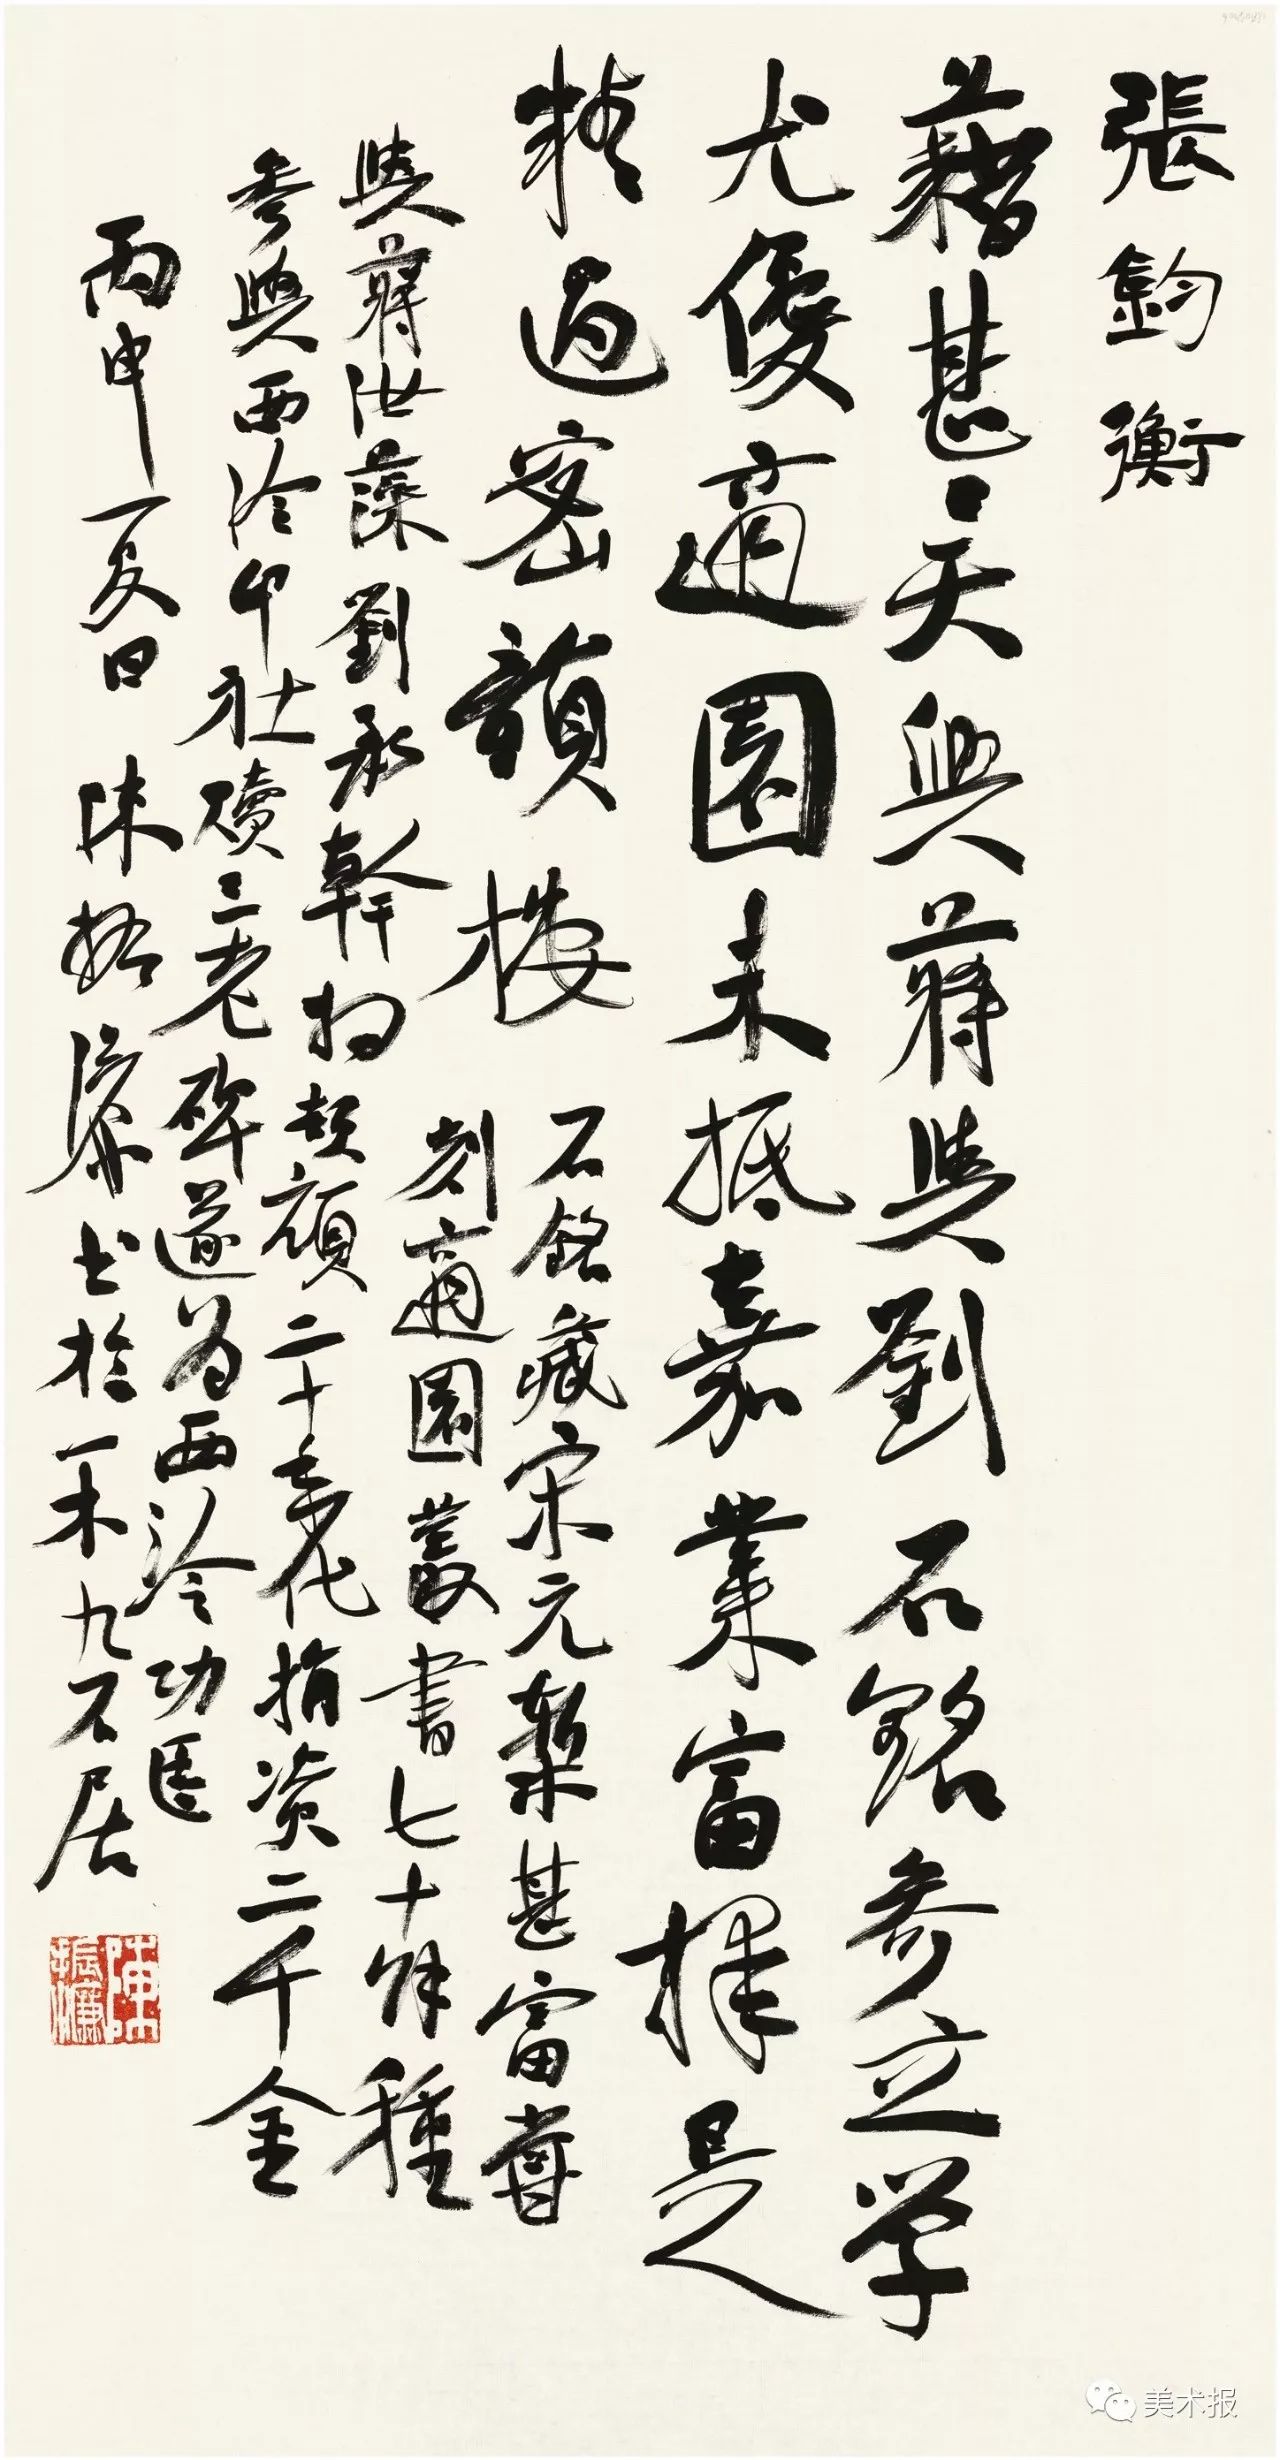 張鈞衡
藉甚天與蔣與劉石銘參立學
尤優適園未抵嘉業富擇是
精過密韻樓
石銘藏宋元槧甚富嘗
刻適園叢書七十餘種
與蔣汝藻劉承幹相頡頏二十年代捐資二千金
參與西泠印社贖三老碑遂為西泠功臣
丙申夏日陳振濂書於一木九石居
陳振濂
美术报